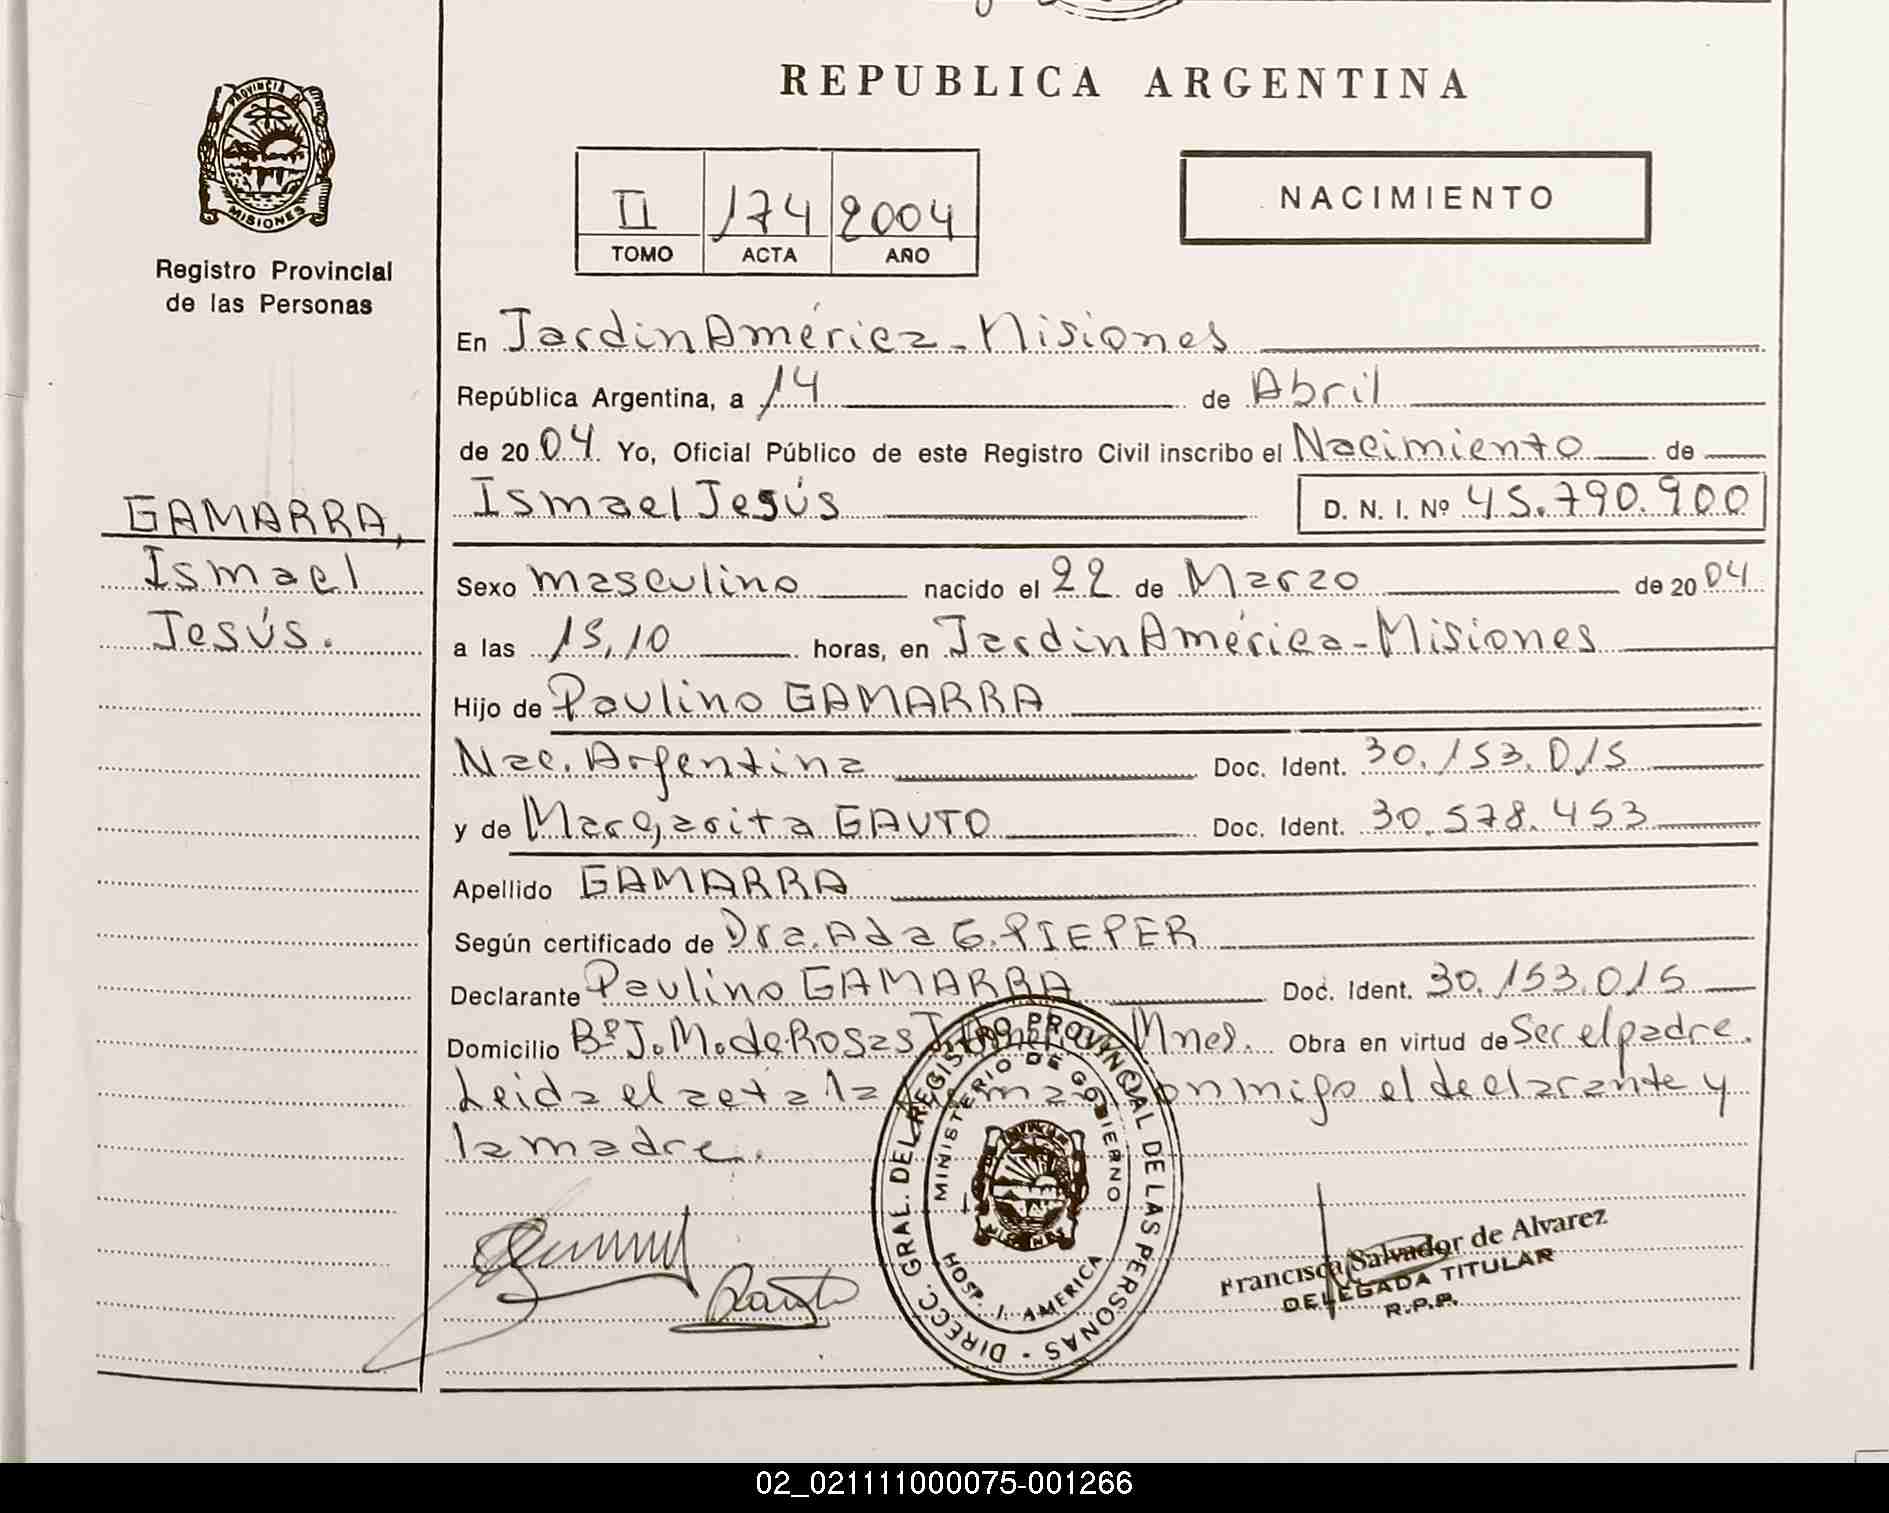 REPUBLICA ARGENTINA
PROVINCIA D
MISIONES
Registro Provincial
de las Personas
II 174 2004
TOMO ACTA AÑO
NACIMIENTO
En Jardin América - Misiones
República Argentina, a 14 de Abril
de 2004 Yo, Oficial Público de este Registro Civil inscribo el Nacimiento de
Ismael Jesús D. N. I. Nº 45.790.900
GAMARRA,
Ismael
Jesús.
Sexo masculino nacido el 22 de Marzo de 2004
a las 15,10 horas, en Jardin América - Misiones
Hijo de Paulino GAMARRA
Nac. Argentina Doc. Ident. 30.153.015
y de Margarita GAUTO Doc. Ident. 30.578.453
Apellido GAMARRA
Según certificado de Dra. Ada G. PIEPER
Declarante Paulino GAMARRA Doc. Ident. 30.153.015
Domicilio Bº J. M. de Rosas J. América Mnes. Obra en virtud de Ser el padre.
Leida el acta la firman conmigo el declarante y
la madre.
DIRECC. GRAL. DEL REGISTRO PROVINCIAL DE LAS PERSONAS -
MINISTERIO DE GOBIERNO
HOSP. J. AMERICA
MISIONES
Gauto
Francisca Salvador de Alvarez
DELEGADA TITULAR
R.P.P.
02_021111000075-001266